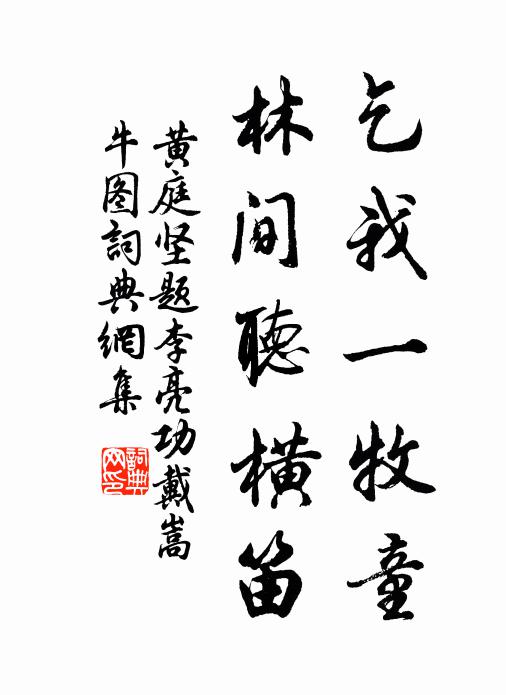 乞我一牧童
林間聽橫笛
黄庭坚题李亮功戴嵩
牛图詞典網集
詞典网印